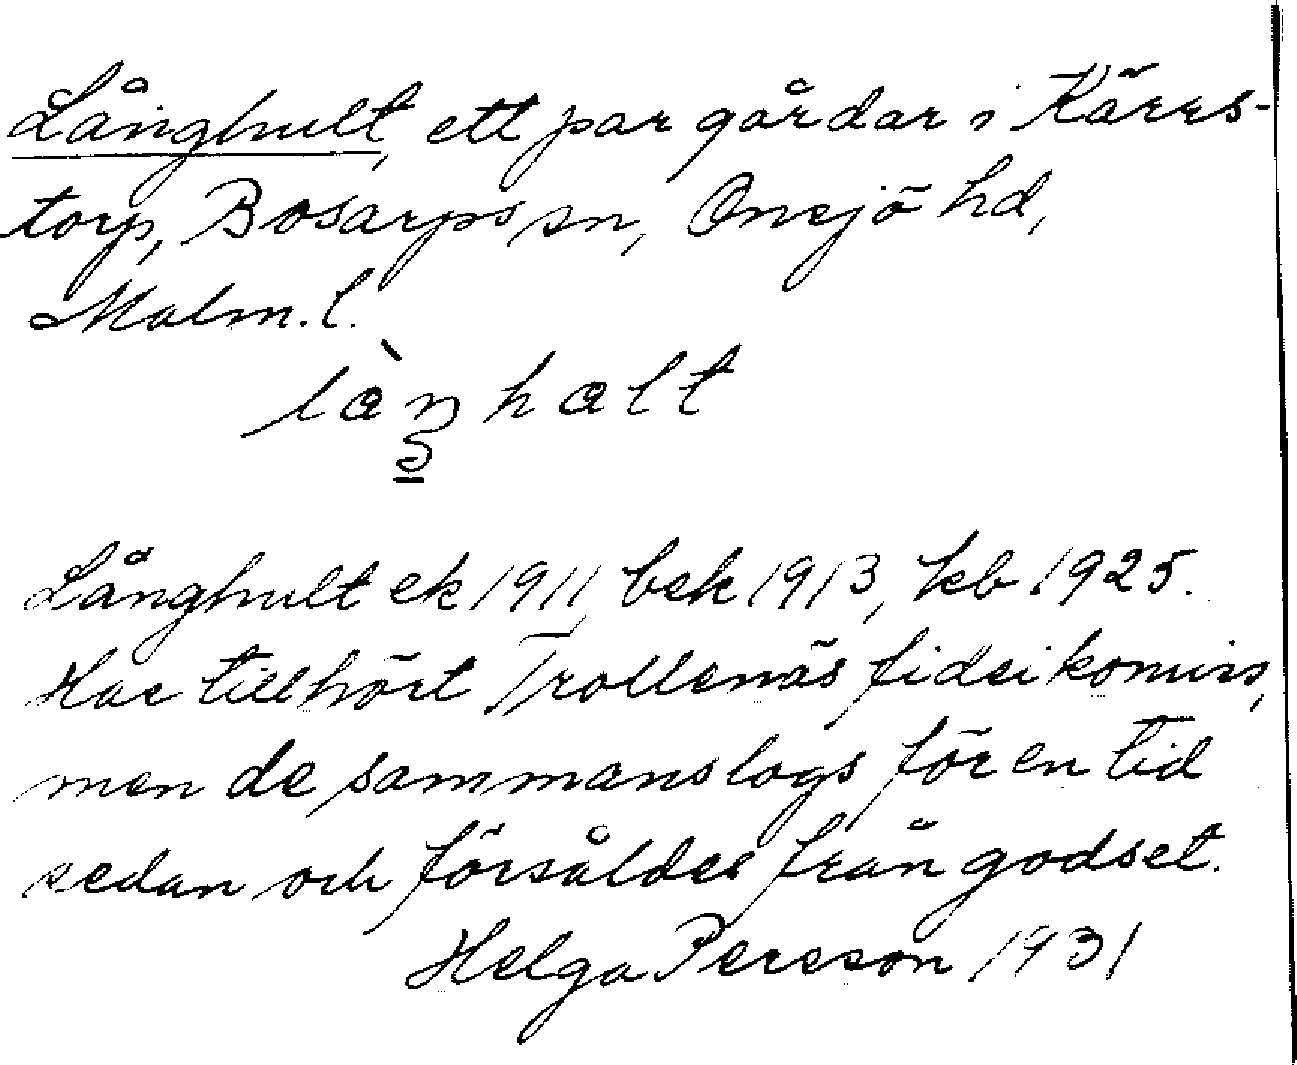 Långhult, ett par gårdar i Kärrs-
torp, Bosarps sn, Onsjö hd,
Malm. l.
làŋhalt
Långhult ek 1911, bsk 1913, kb 1925.
Har tillhört Trollenäs fideikomiss,
men de sammanslogs för en tid
sedan och försåldes från godset.
Helga Persson 1931